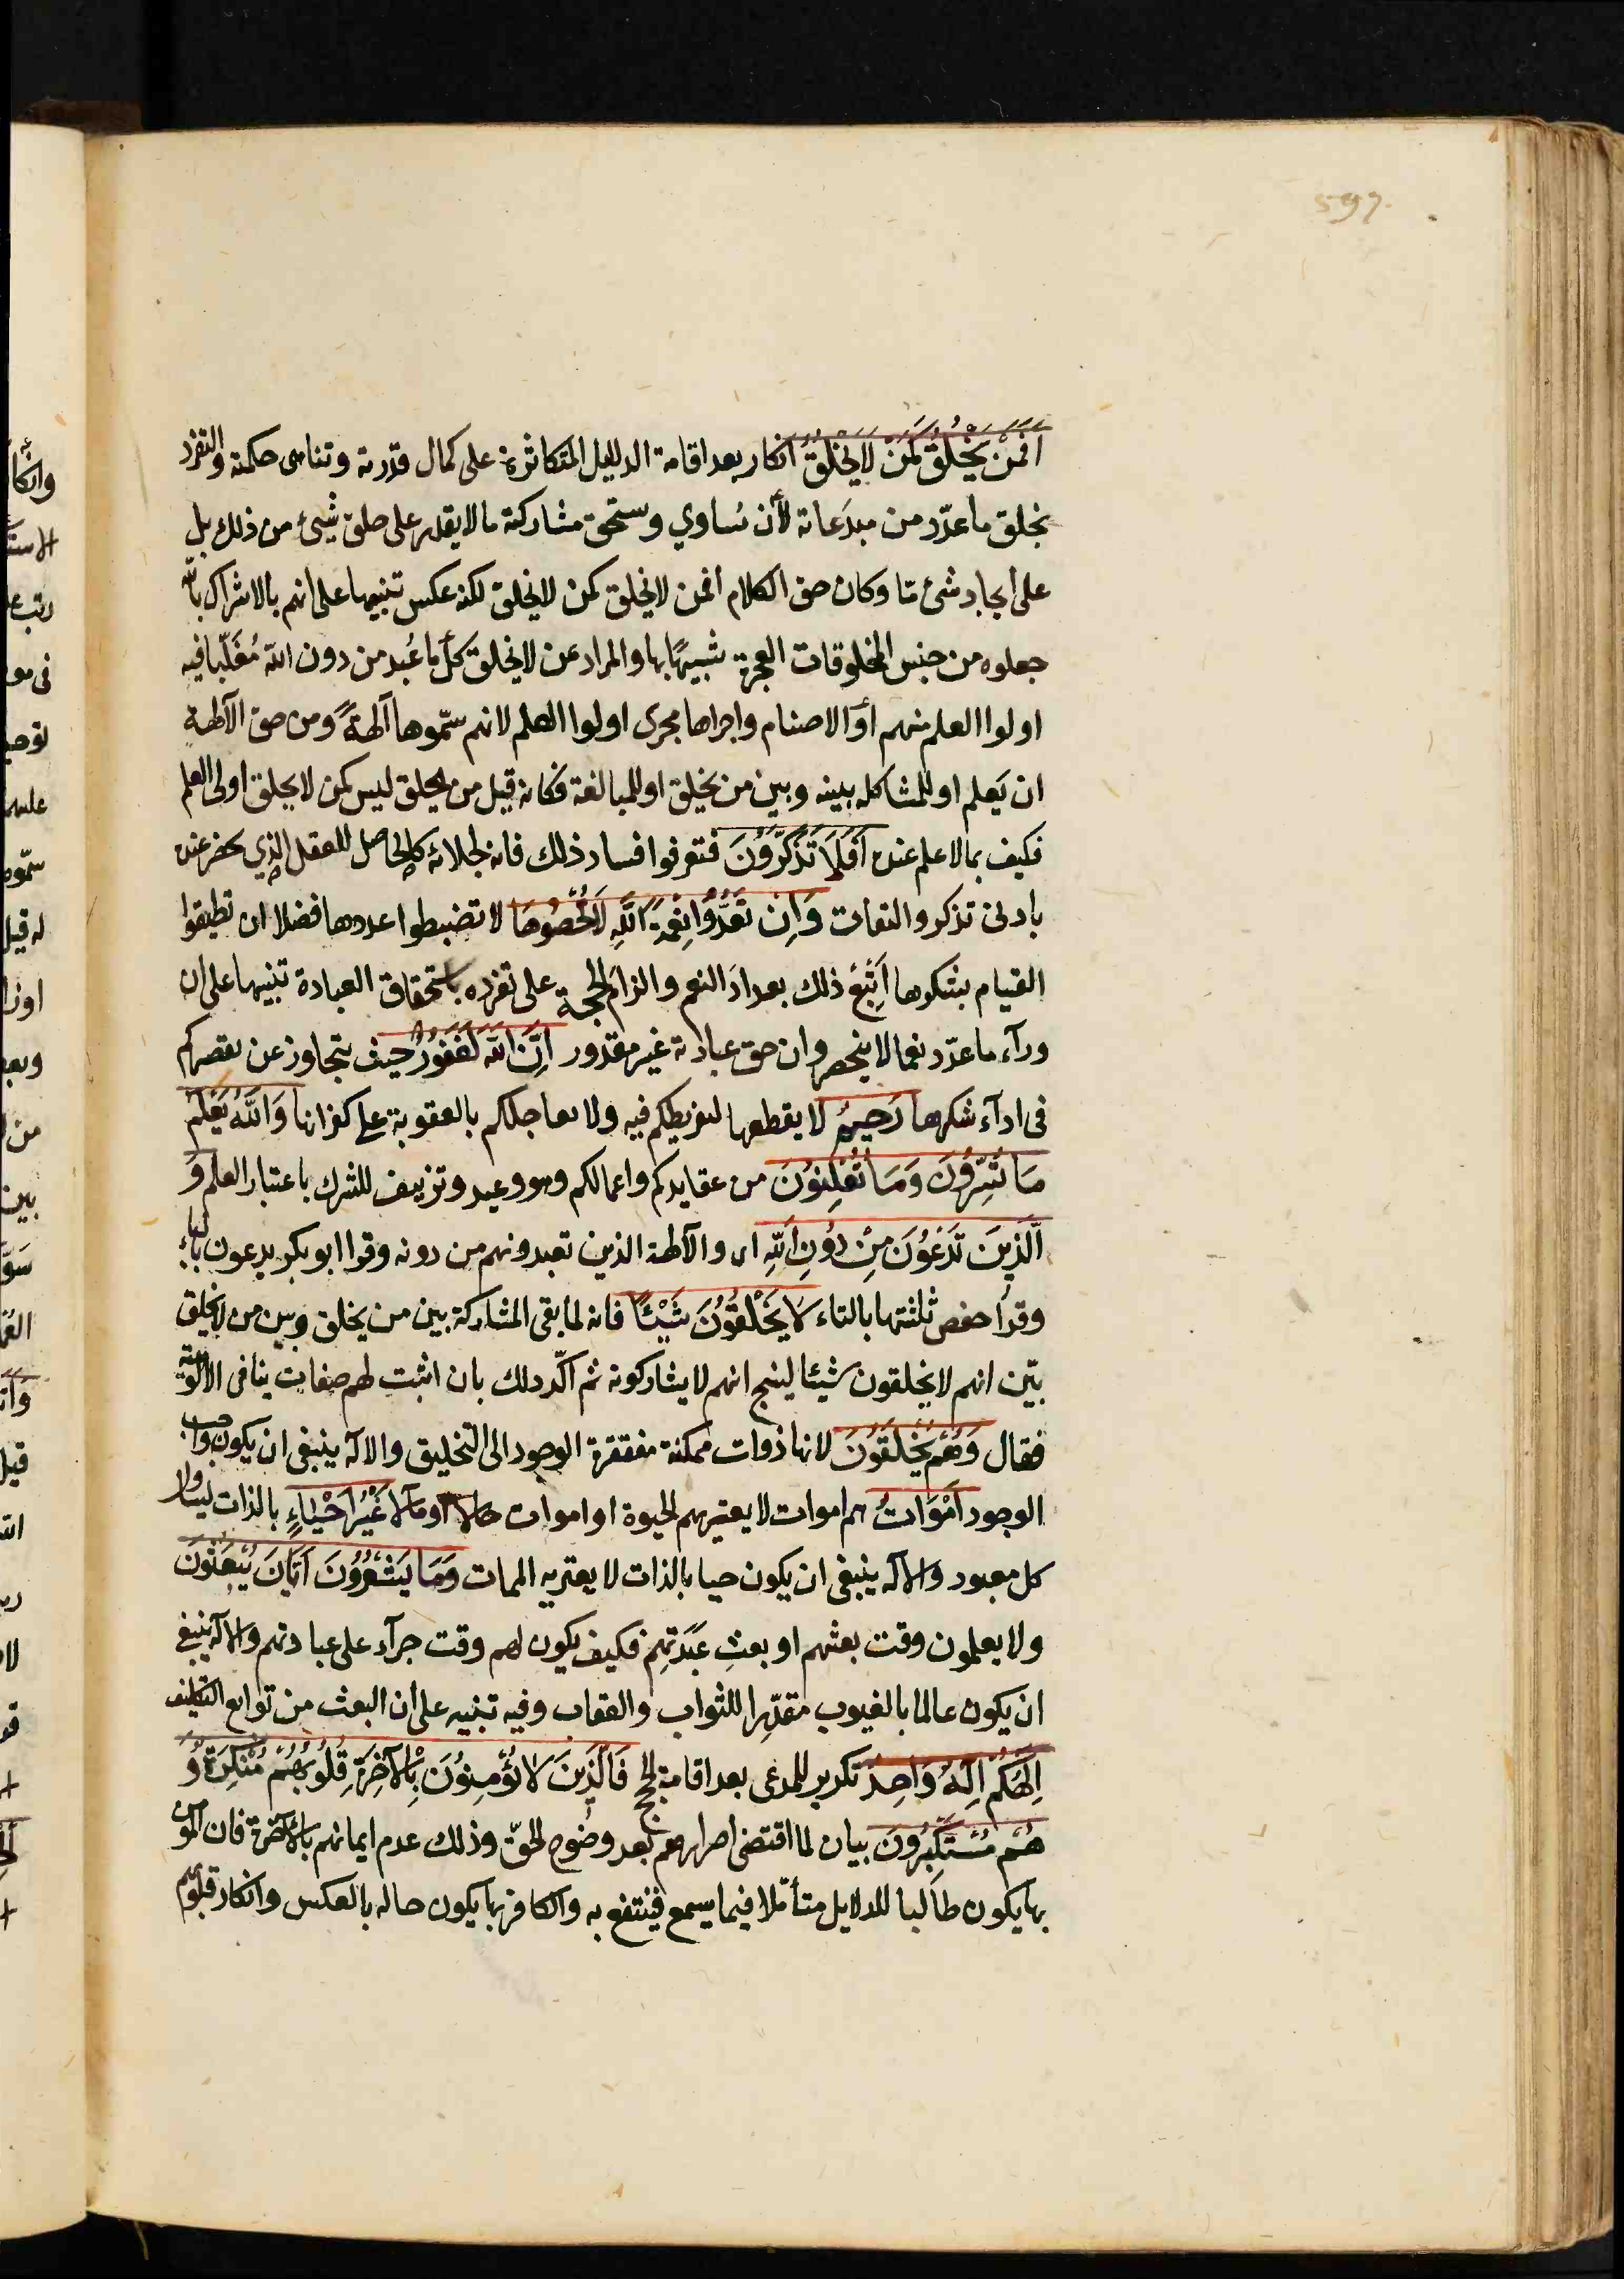 597
اَفَمَنْ يَخْلُقُ كَمَنْ لَا يَخْلُقُ انكار بعد اقامة الدليل المتكاثرة على كمال قدرته وتناهى حكمته والتفرد
بخلق ما عدّد من مبدَعاته لأن يُساوي ويستحق مشاركته ما لا يقدر على خلق شيئ من ذلك بل
على ايجاد شئ مّا وكان حق الكلام افمن لا يخلق كمن لا يخلق لكنه عكس تنبيها على انهم بالاشراك بالله
جعلوه من جنس المخلوقات العجزة شبيهًا بها والمراد عن لا يخلق كل ما عُبد من دون الله مُغَلّبا فيه
اولوا العلم منهم أو الاصنام واجراها مجرى اولوا العلم لانهم سمّوها آلهةً ومن حق الآلهة
ان يَعلم او للمشاكله بينه وبين من يخلق او للمبالغة فكانه قيل من يخلق ليس كمن لا يخلق اولى العلم
فكيف بما لا علم عنده اَفَلَا تَذَكَّرُونَ فتعرفوا فساد ذلك فانه لجلائه كالحاصل للعقل الذي يحضر عنده
بادنى تذكر والتفات وَاِن تَعُدُّوا نِعْمَةَ اللهِ لَا تُحْصُوهَا لا تضبطوا عددها فضلا ان تطيقوا
القيام بشكرها اَتبَعَ ذلك بعدادَ النعم والزامَ الحجة على تفرده باستحقاق العبادة تنبيها على ان
ورآء ما عدّد نعما لا ينحصر وان حق عبادته غير مقدور اِنَّ اللهَ لَغَفُورٌ حيث يتجاوز عن تقصيركم
فى ادآء شكرها رَحِيمٌ لا يقطعها لتفريطكم فيه ولا يعاجلكم بالعقوبة على كفرانها وَاللهُ يَعْلَمُ
مَا تُسِرُّونَ وَمَا تُعْلِنُونَ من عقايدكم واعمالكم وهو وعيد وتزييف للشرك باعتبار العلم وَ
الَّذِينَ تَدْعُونَ مِنْ دُونِ اللهِ اى والآلهة الذين تعبدونهم من دونه وقرا ابو بكر يدعون بالياء
وقرأ حفص ثلثتها بالتاء لَا يَخْلُقُونَ شَيْئًا فانه لما بقى المشاركة بين من يخلق وبين من لا يخلق
بيّن انهم لا يخلقون شيئا لينتج انهم لا يشاركونه ثم اكّد ذلك بان اثبت لهم صفات ينافى الالوهية
فقال وَهُمْ يُخْلَقُونَ لانها ذوات ممكنة مفتقرة الوجود الى التخليق والاله ينبغى ان يكون واجب
الوجود اَمْوَاتٌ هم اموات لا يعتريهم الحيوة او اموات حالا او مآلا غَيْرُ اَحْيَاءٍ بالذات ليتناول
كل معبود والاله ينبغى ان يكون حيا بالذات لا يعتريه الممات وَمَا يَشْعُرُونَ اَيَّانَ يُبْعَثُونَ
ولا يعلمون وقت بعثهم او بعثِ عَبَدَتِهِم فكيف يكون لهم وقت جزآء على عبادتهم والاله ينبغى
ان يكون عالما بالغيوب مقدّرا للثواب والعقاب وفيه تنبيه على ان البعث من توابع التكليف
اِلٰهُكُمْ اِلٰهٌ وَاحِدٌ تكرير للمدعى بعد اقامة الحجج فَالَّذِينَ لَا يُؤْمِنُونَ بِالْآخِرَةِ قُلُوبُهُمْ مُنْكِرَةٌ وَ
هُمْ مُسْتَكْبِرُونَ بيان لما اقتضى اصرارهم بعد وضوح الحقّ وذلك عدم ايمانهم بالآخرة فان المؤمن
بها يكون طالبا للدلايل متأمّلا فيما يسمع فينتفع به والكافر بها يكون حاله بالعكس وانكار قلوبهم